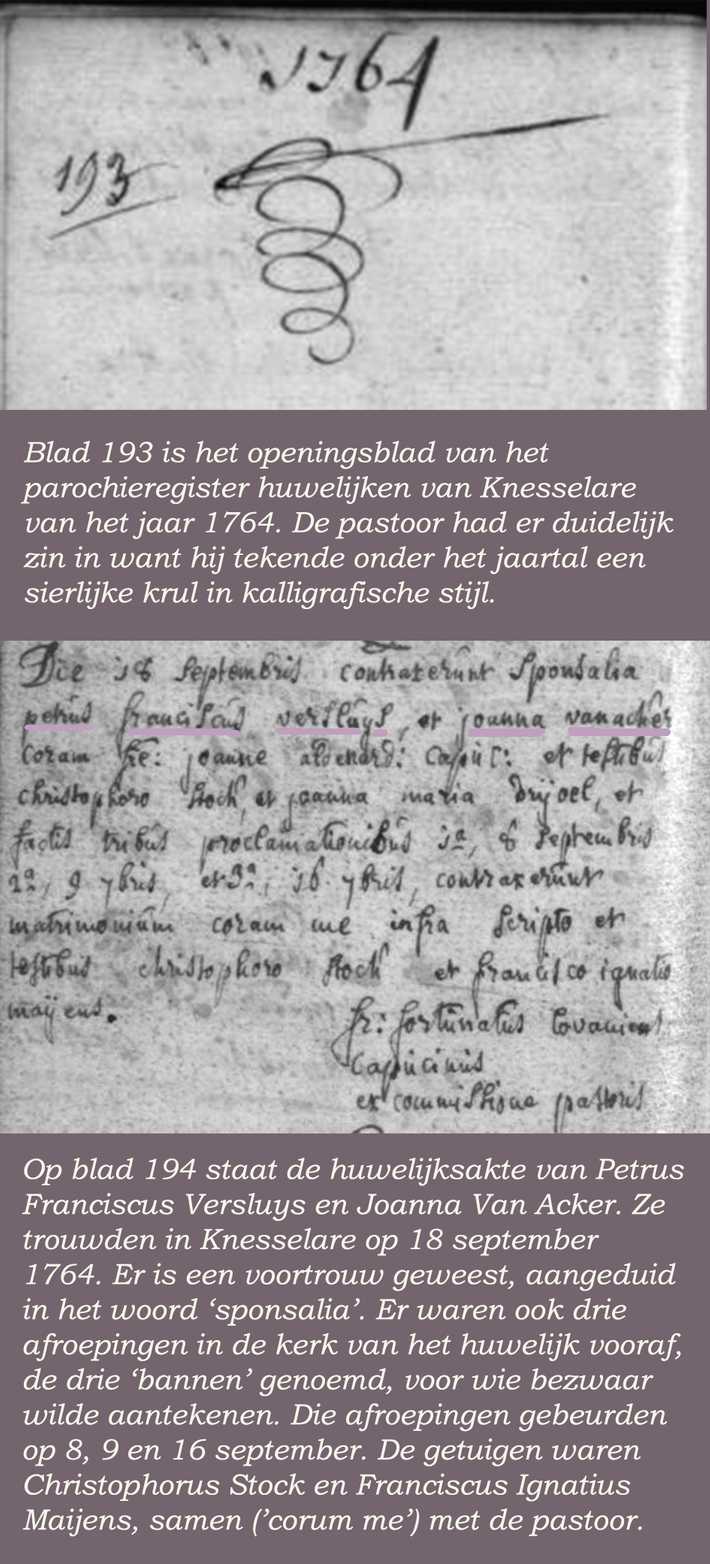 1764
193
Blad 193 is het openingsblad van het
parochieregister huwelijken van Knesselare
van het jaar 1764. De pastoor had er duidelijk
zin in want hij tekende onder het jaartal een
sierlijke krul in kalligrafische stijl.
Die 18 Septembris contraxerunt Sponsalia
petrus franciscus versluys, et joanna vanacker
coram fr: joanne capuc: et testibus
christophoro stock, et joanna maria et
factis tribus proclamationibus 1a, 8 Septembris
2a, 9 7bris, et 3a, 16 7bris, contraxerunt
matrimonium coram me infra scripto et
testibus christophoro stock et francisco ignatio
maijens.
fr: fortunatus
Capucinus
ex commissione pastoris
Op blad 194 staat de huwelijksakte van Petrus
Franciscus Versluys en Joanna Van Acker. Ze
trouwden in Knesselare op 18 september
1764. Er is een voortrouw geweest, aangeduid
in het woord ‘sponsalia’. Er waren ook drie
afroepingen in de kerk van het huwelijk vooraf,
de drie ‘bannen’ genoemd, voor wie bezwaar
wilde aantekenen. Die afroepingen gebeurden
op 8, 9 en 16 september. De getuigen waren
Christophorus Stock en Franciscus Ignatius
Maijens, samen (’corum me’) met de pastoor.